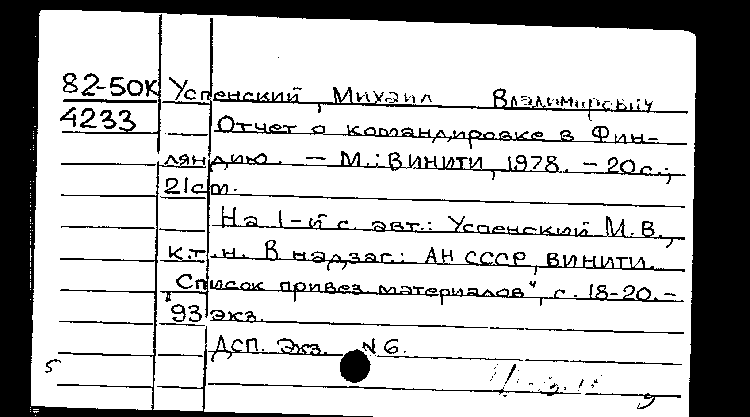 82-50К Успенский, Михаил Владимирович
4233 Отчет о командировке в Фин-
ляндию. — М.: ВИНИТИ, 1978. — 20 с.;
21 см.
На 1-й с. авт.: Успенский М.В.,
к.т.н. В надзаг.: АН СССР, ВИНИТИ.
"Список привез. материалов", с. 18-20. —
93 экз.
ДСП. Экз. N 6.
5